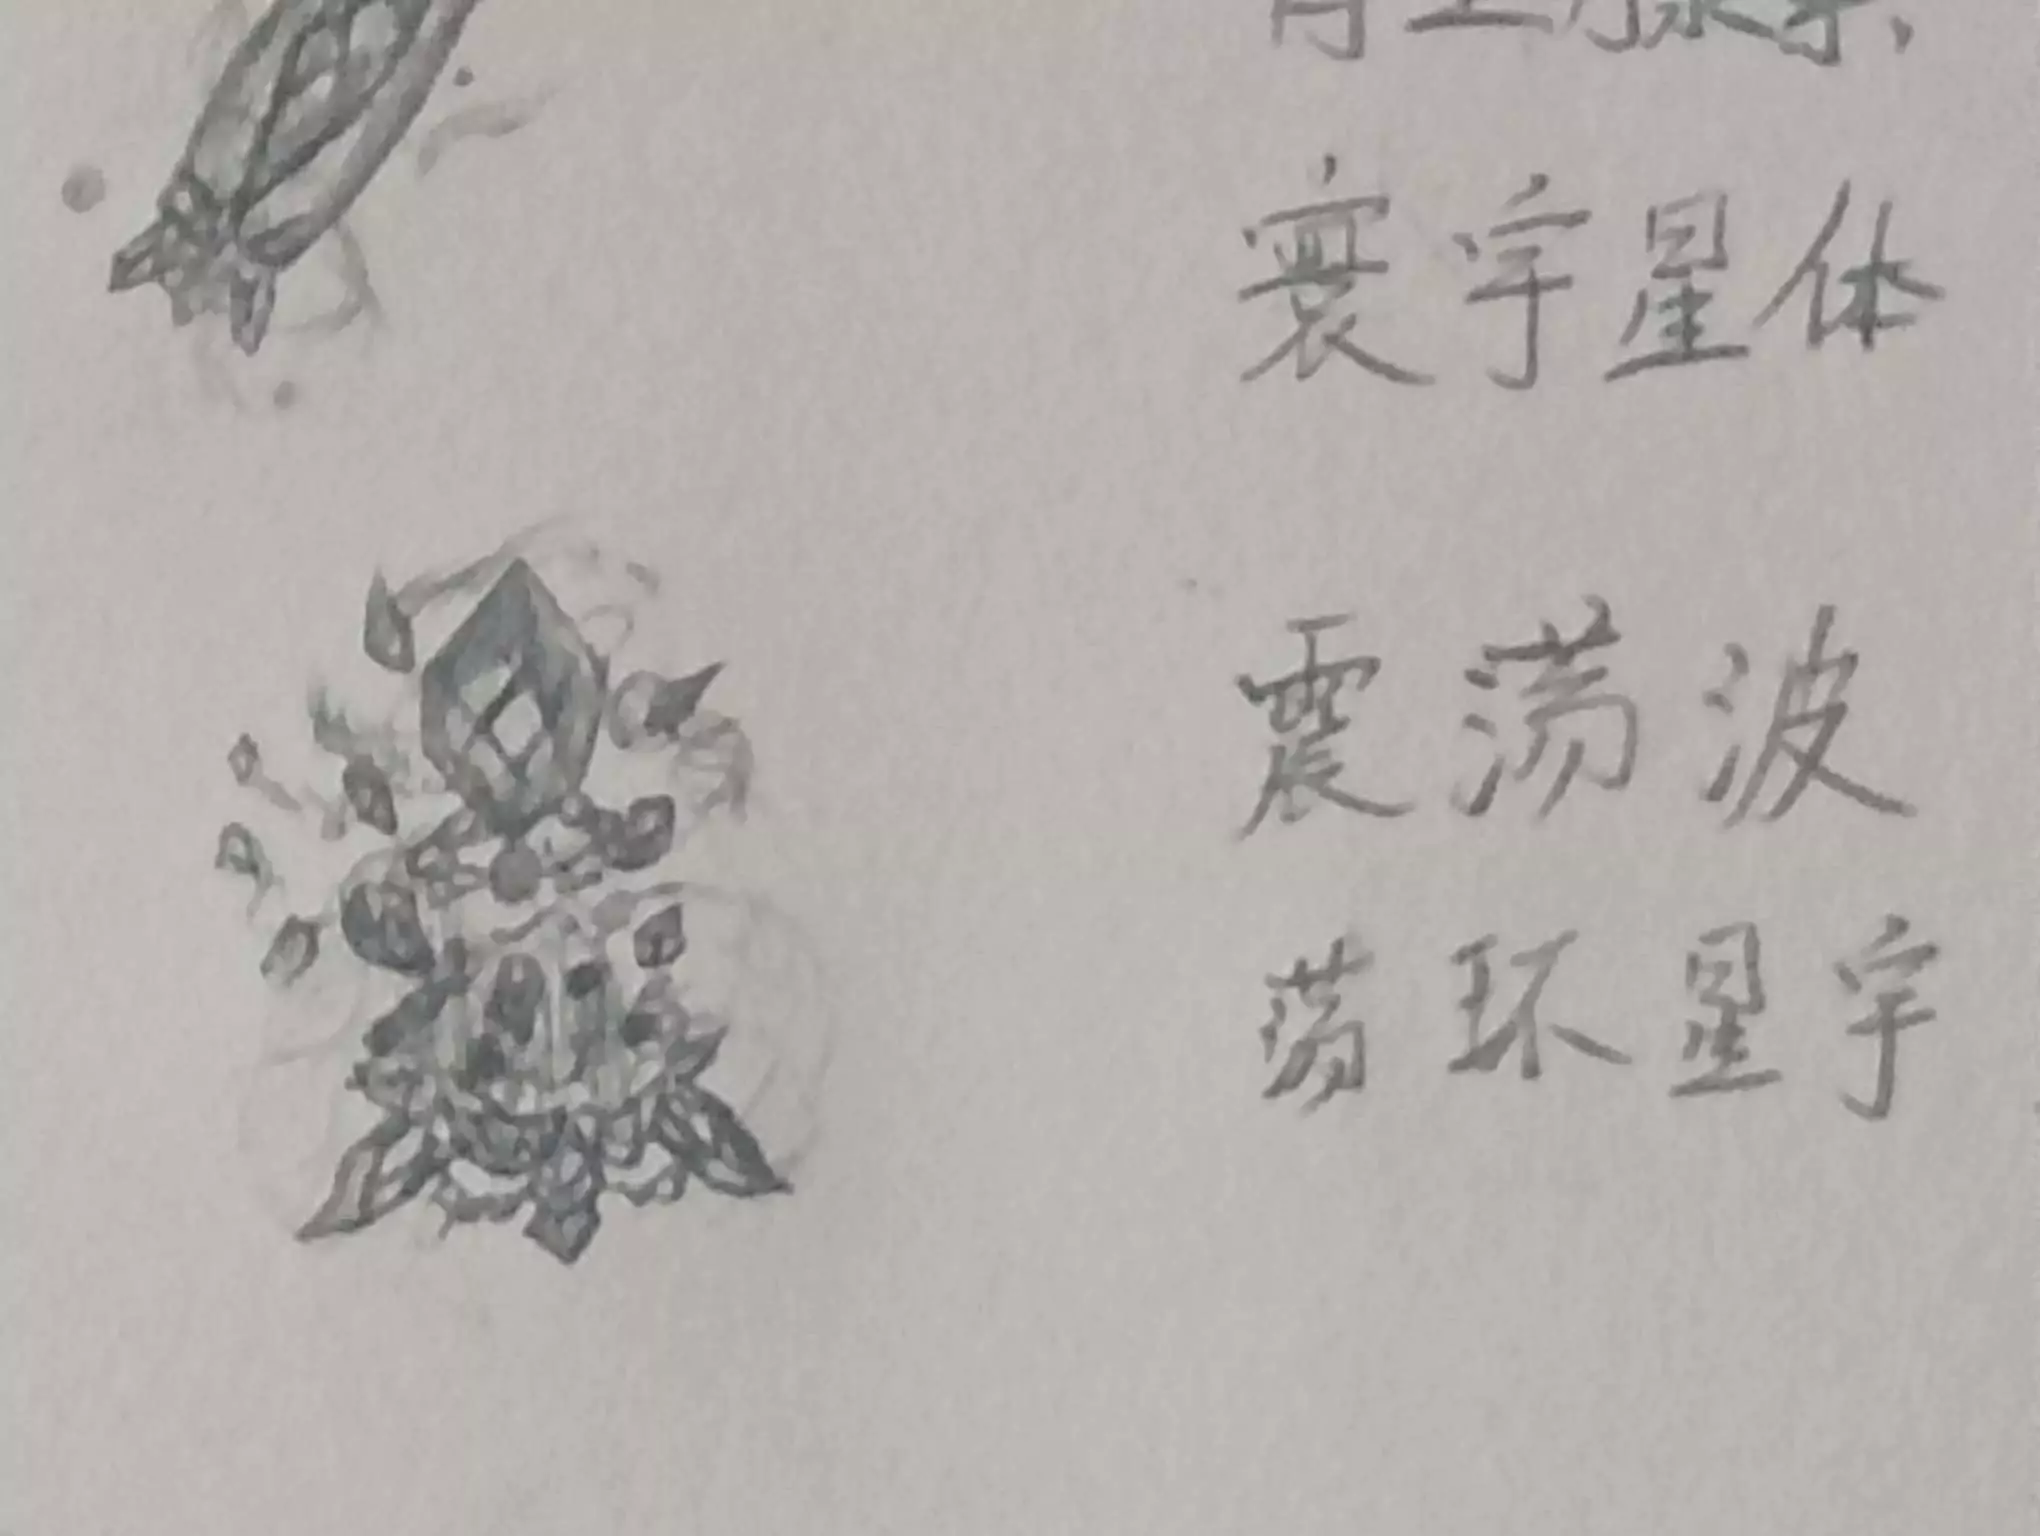 寰宇星体
震荡波
荡环星宇